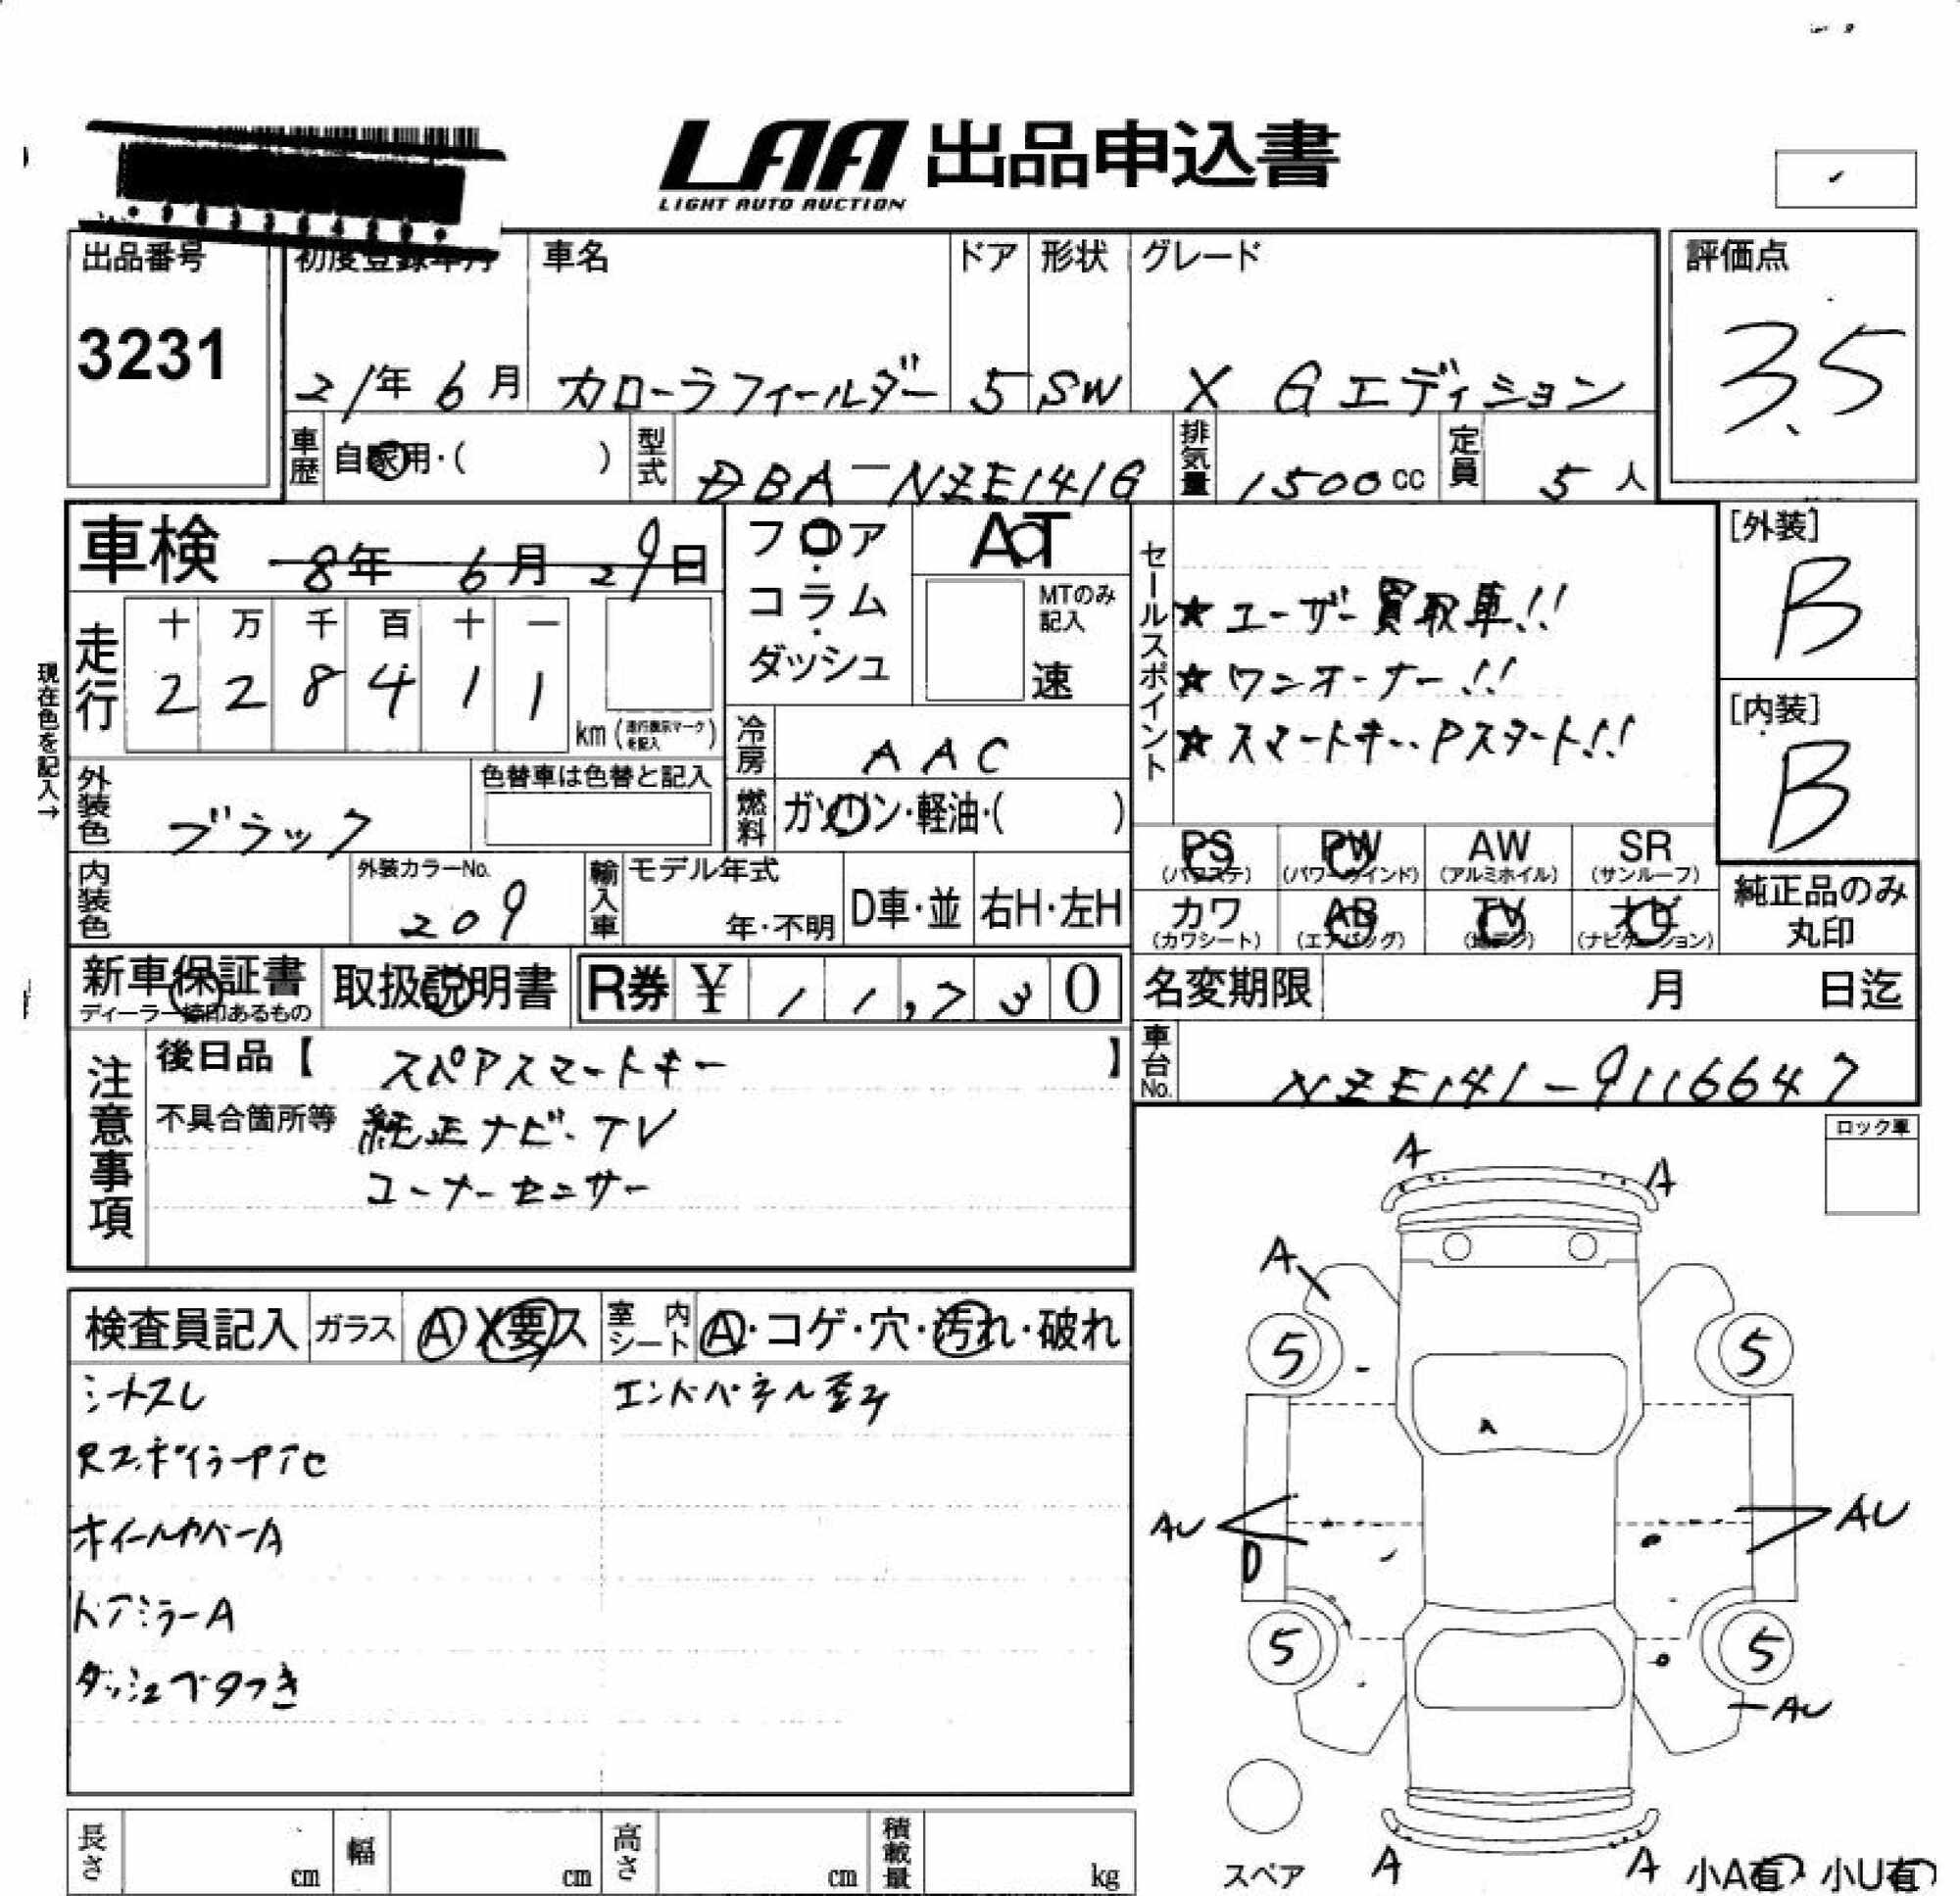 LAA 出品申込書
LIGHT AUTO AUCTION
出品番号
3231
初度登録年月
21年 6月
車名
カローラフィールダー
ドア
5
形状
SW
グレード
X Gエディション
評価点
3.5
車歴 自家用・( )
型式 DBA-NZE141G
排気量 1500cc
定員 5人
車検 8年 6月 29日
フロア・コラム・ダッシュ
AT
MTのみ記入
速
セールスポイント
★ユーザー買取車!!
★ワンオーナー!!
★スマートキー・Pスタート!!
[外装]
B
[内装]
B
現在色を記入→
走行
十 万 千 百 十 一
2 2 8 4 1 1
km(走行表示マークを記入)
冷房 AAC
燃料 ガソリン・軽油・( )
外装色 ブラック
色替車は色替と記入
内装色
外装カラーNo.
209
輸入車
モデル年式
年・不明
D車・並
右H・左H
PS (パワステ)
PW (パワーウインド)
AW (アルミホイル)
SR (サンルーフ)
カワ (カワシート)
AB (エアバッグ)
TV (地デジ)
ナビ (ナビゲーション)
純正品のみ丸印
新車保証書
ディーラー捺印あるもの
取扱説明書
R券 ¥ 11,730
名変期限 月 日迄
車台No. NZE141-9116647
注意事項
後日品【 スペアスマートキー 】
不具合箇所等 純正ナビ・TV
コーナーセンサー
ロック車
検査員記入
ガラス A X要ス
室内シート A・コゲ・穴・汚れ・破れ
シートスレ
エンドパネル歪み
Rスポイラーハセ
ホイールカバーA
ドアミラーA
ダッシュベタつき
A A
A
5 5
AU AU
D
5 5
AU
スペア
A A
小A有 小U有
長さ cm
幅 cm
高さ cm
積載量 kg